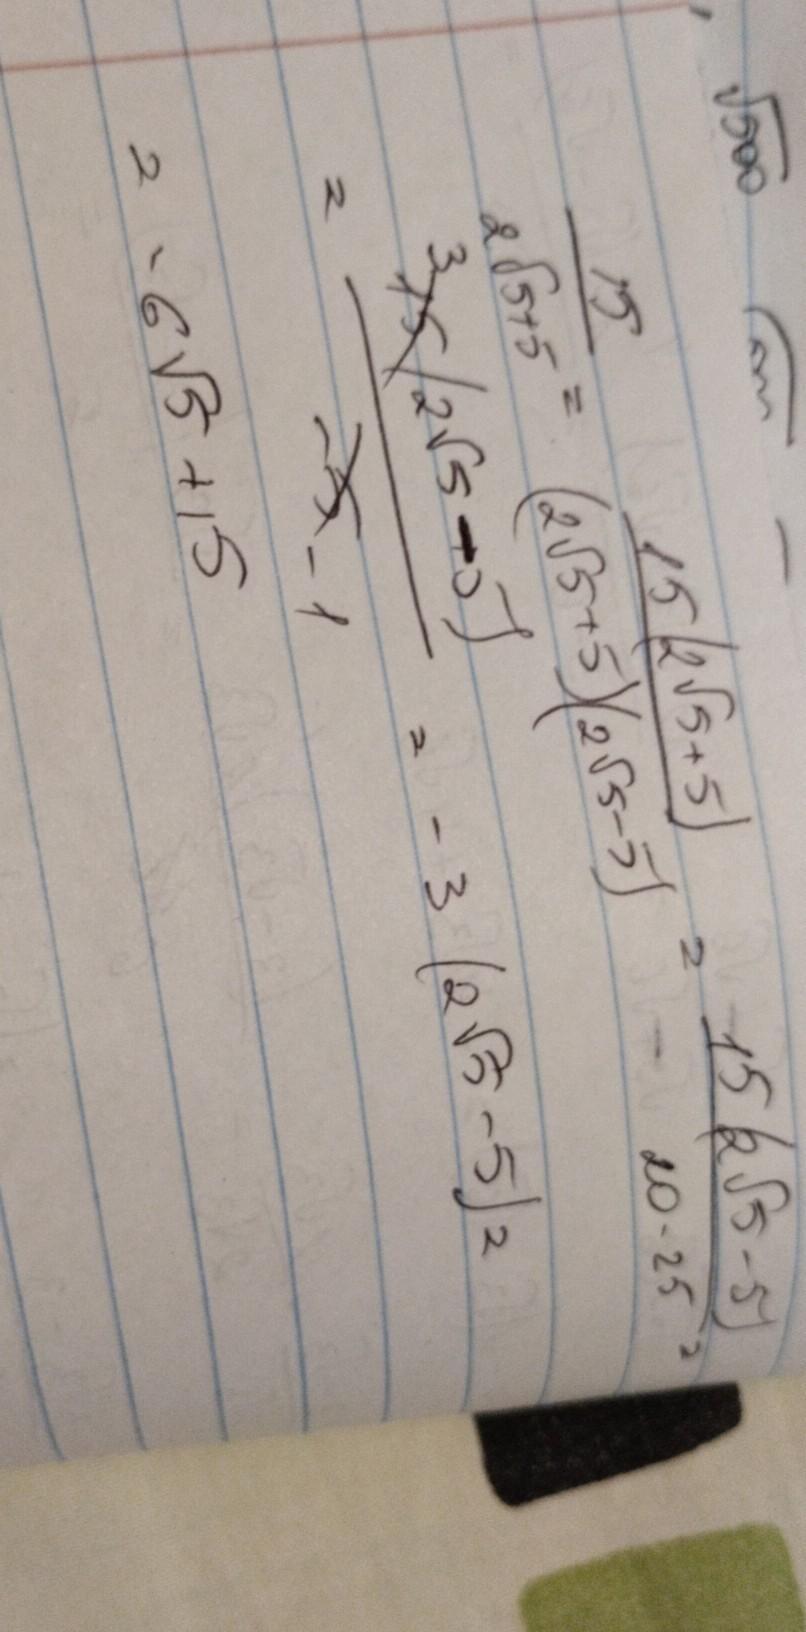 √500
15/(2√5+5) = 15(2√5+5)/((2√5+5)(2√5-5)) = 15(2√5-5)/(20-25) =
= 3 15(2√5-5)/(-5 -1) = -3(2√5-5) =
= -6√5+15